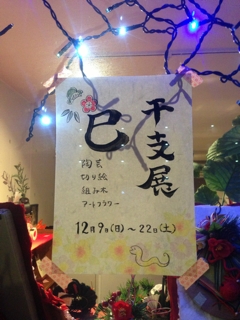 干支展
巳
陶芸
切り絵
組み木
アートフラワー
12月9日(日)～22日(土)